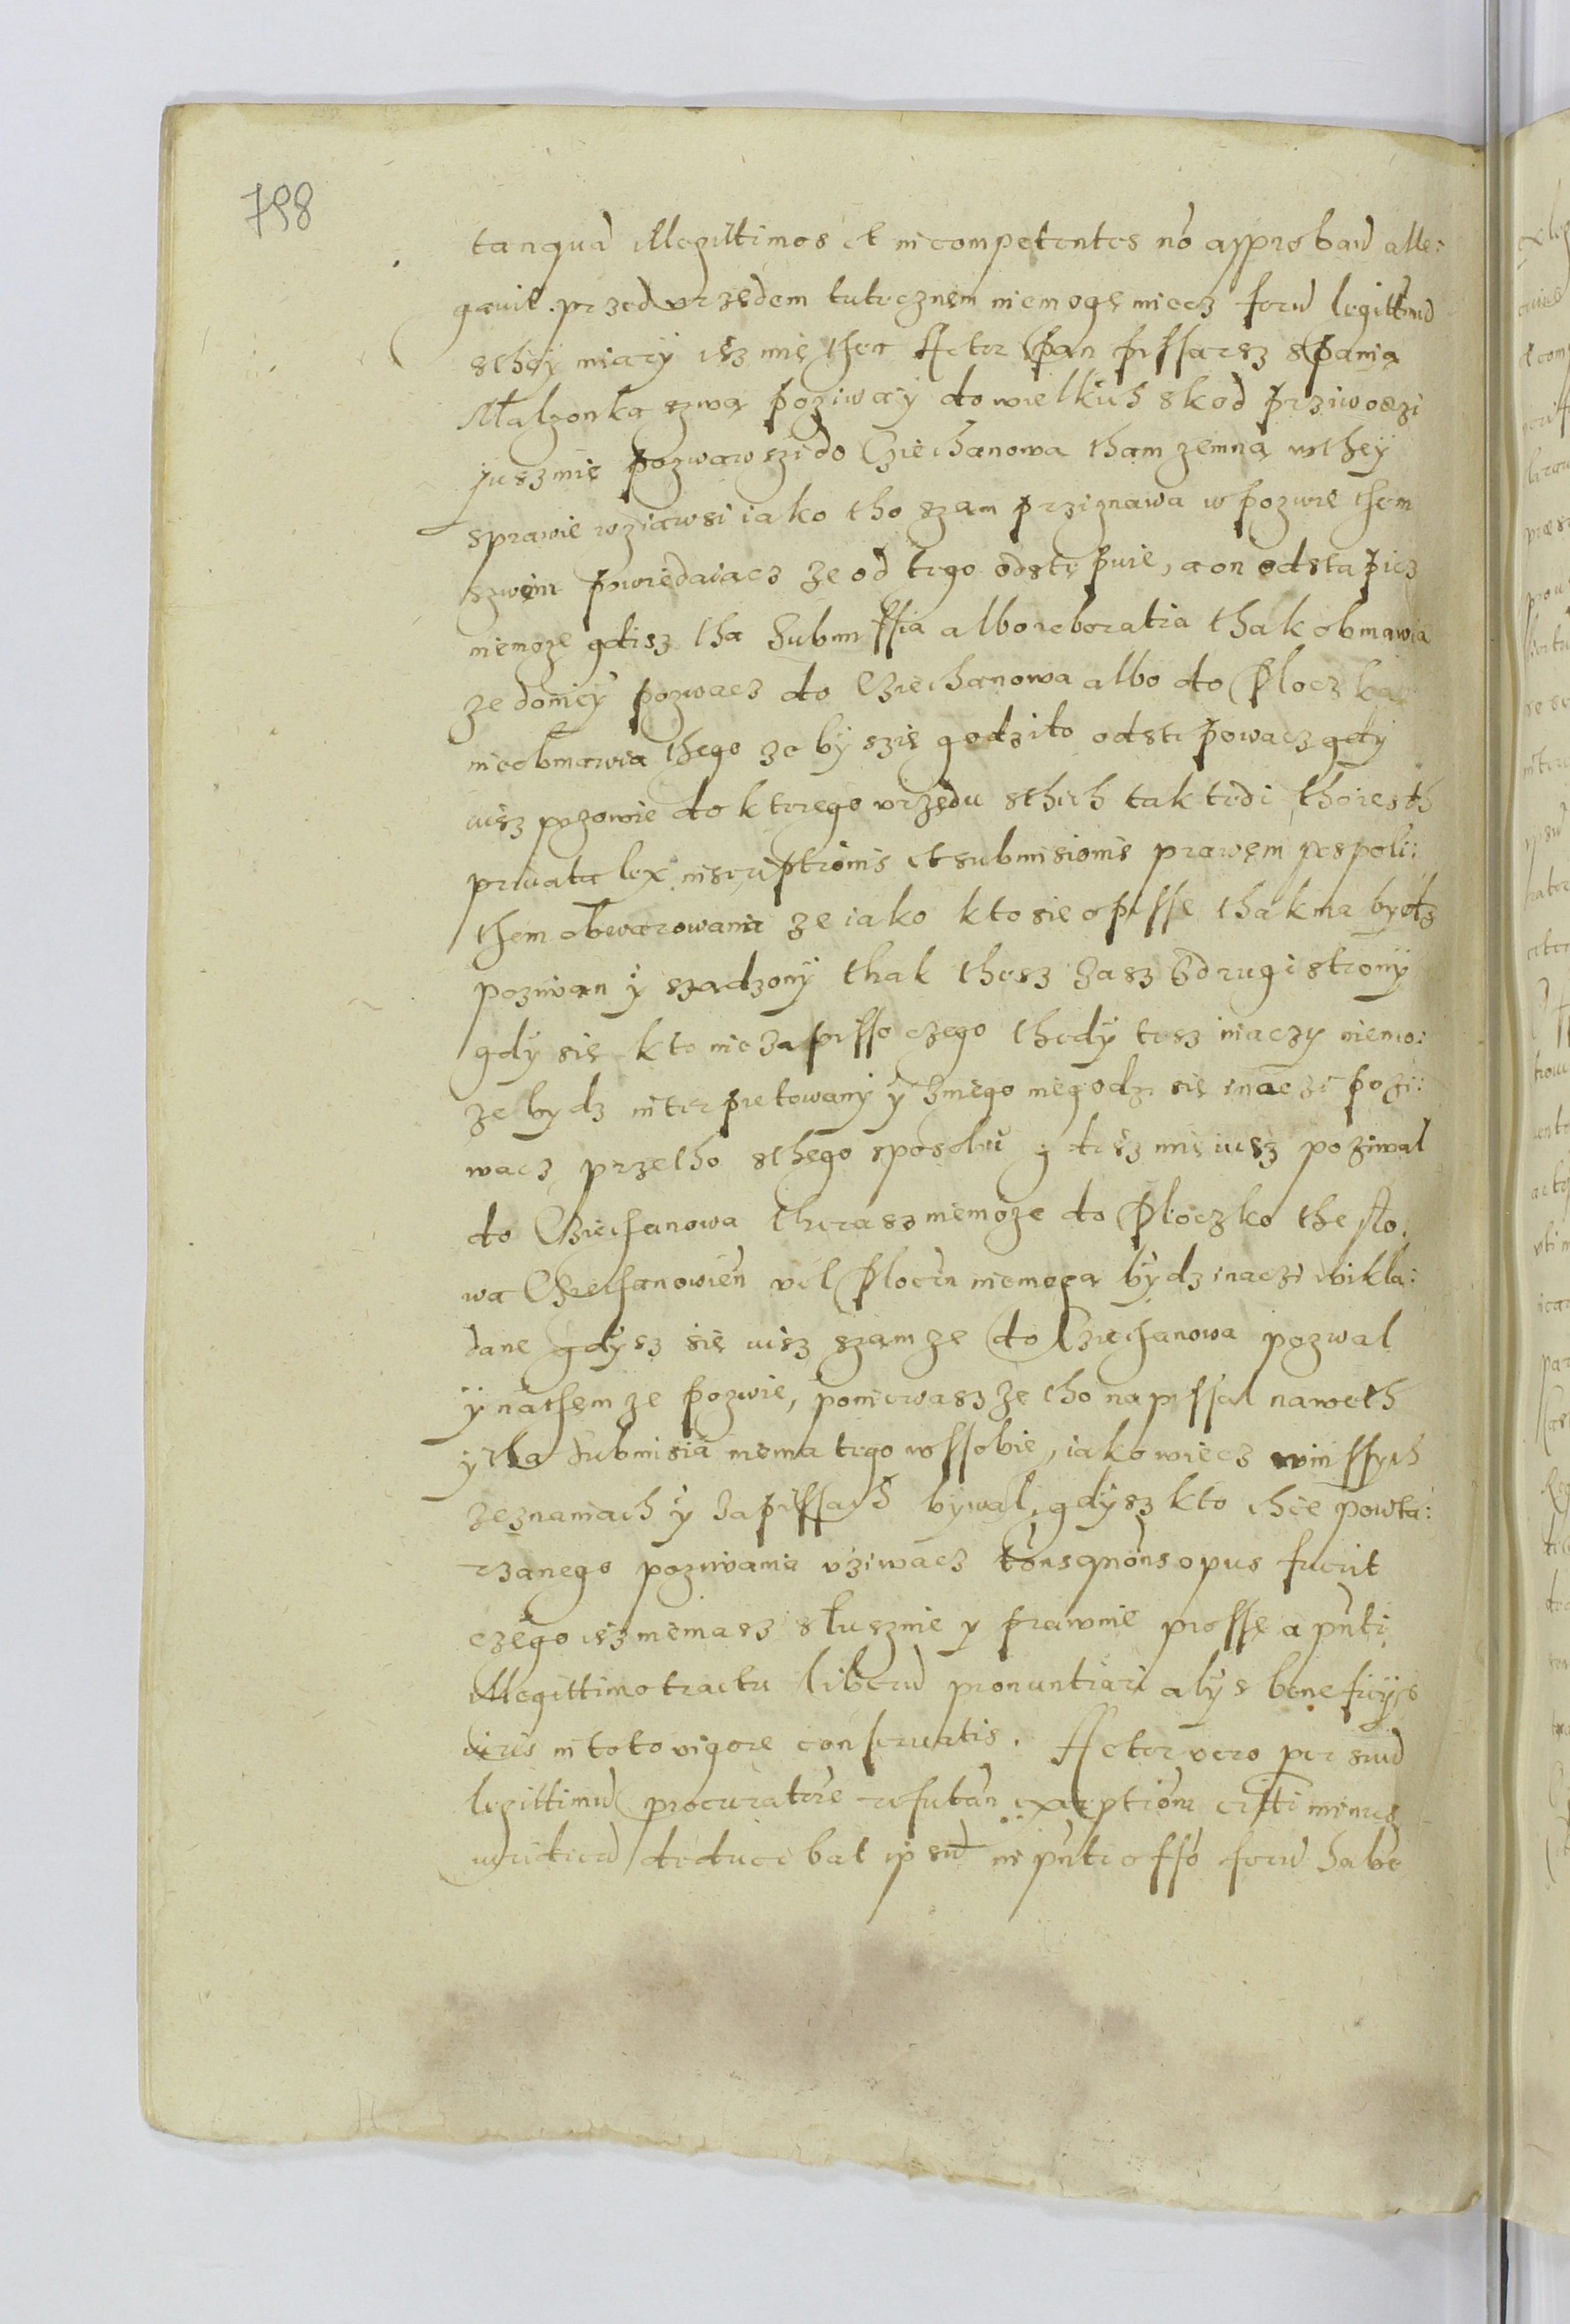 798
tanquā illegittimos et incompetentes nō approband alle:
gavit. przed vrzędem tutecznem niemogę miecz forū legittimū
sthęy miary isz mię then Actor Pan pissarsz spanią
Małzonką szwą poziwaiy do wielkich skod prziwoczi
jusz mię pozwawszi do Cziechanowa tham zemną wthey
sprawie wziawsi iako tho szam prziznawa w pozwie them
szwem powiedaiacz ze od tego odstępuie, a on odstapicz
niemoze gdisz tha submissia albo roboratia thak obmawia
ze domęy pozwacz do Cziechanowa albo do Płoczka
nieobmawia thego ze by szię godziło odstępowacz gdy
iusz pozowie do kterego vrzędu sthich tak tedi thoiesth
privata lex inscriptionis et submisionis prawem pospoli:
them obwarowana ze iako kto sie opisse thak ma bydz
pozwan y szadzony thak thesz zasz z drugi strony
gdy się kto nie zapisse czego thedy tesz inaczy niemo:
ze bydz interpretowany y zniego niegodzi się inaczi pozi:
wacz przetho sthego sposobu gdisz mię iusz poziwał
do Cziechanowa therasz niemoze do Płoczko the sło:
wa Cziechanowien vel Plocen niemogą bydz inaczi wikla:
dane gdysz się iusz szam ze do Cziechanowa pozwal
y nathem ze pozwie, poniewasz ze tho napissal naweth
y tha submisia niema tego wssobie, iako więcz winssych
zeznaniach y zapissach bywal, gdysz kto chcę powta:
rzanego pozwania vziwacz tōns qnōns opus fuerit
czego isz niemasz słusznie y prawnie prosse a pñti
illegittimo tractu liberū pronuntiari alys beneficijs
iuris in toto vigore conservatis. Actor vero per suū
legittimū procuratōre refutān exceptiōne citti minus
iuridicū deducebat ipsū in pñti offō forū habē